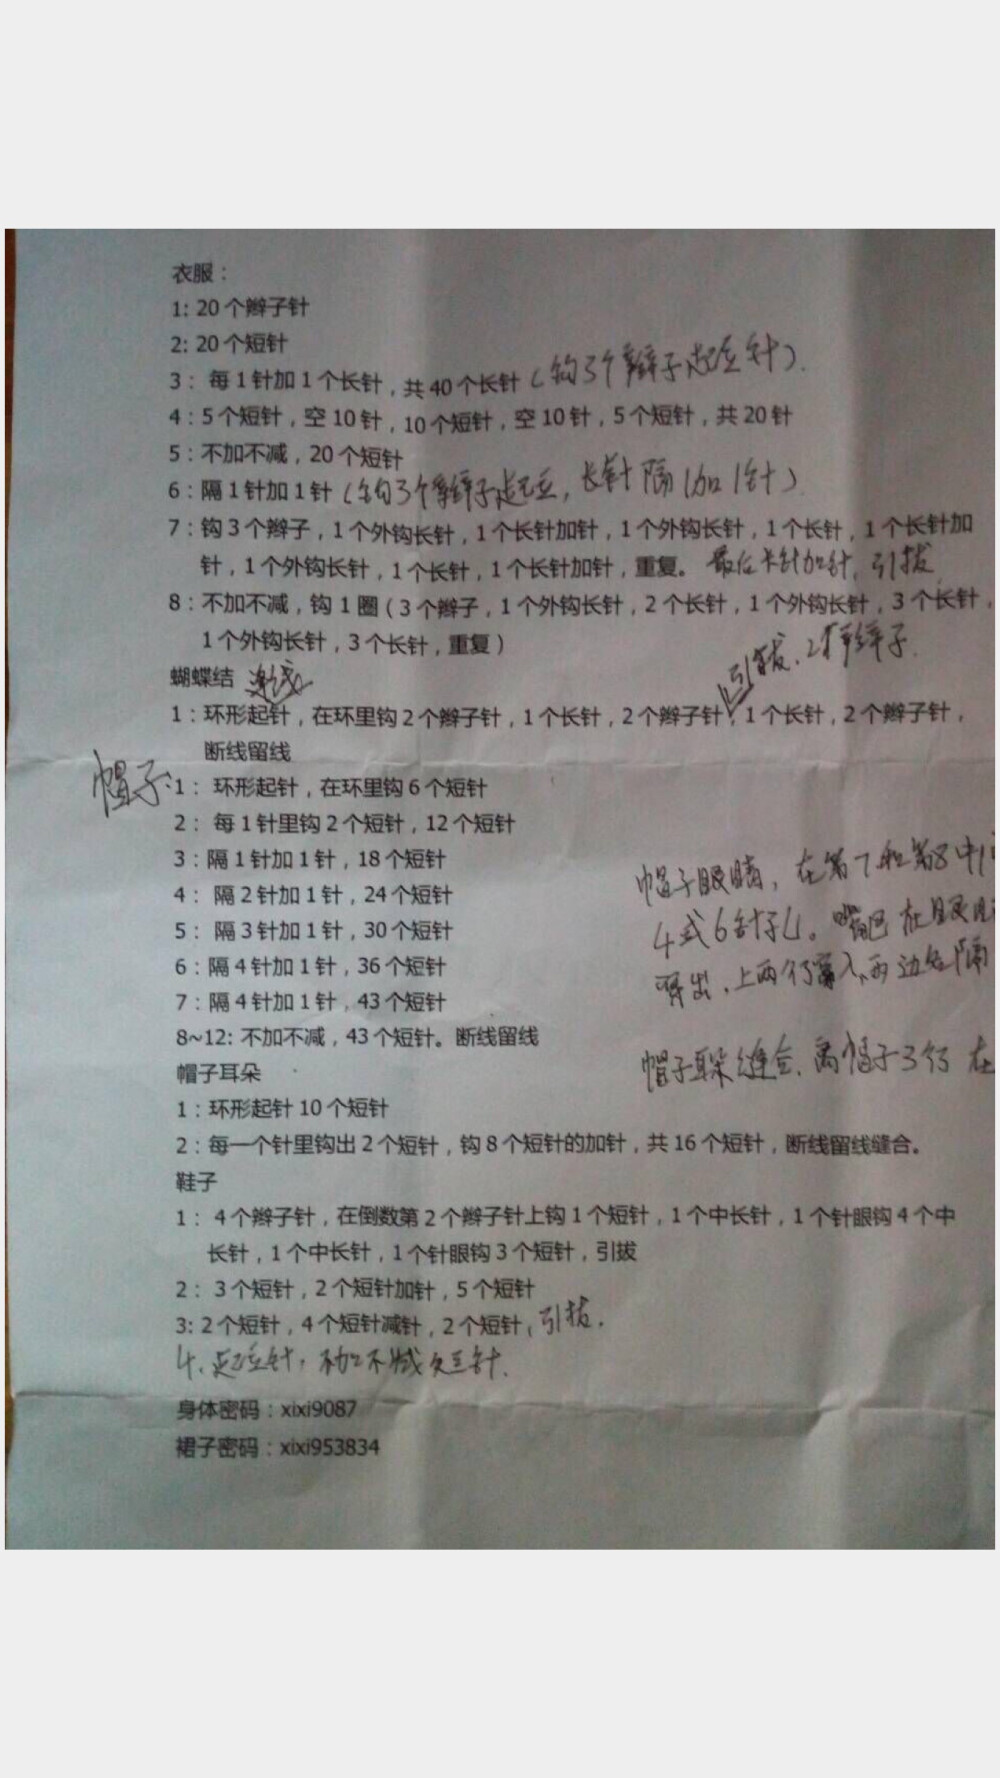 衣服：
1: 20个辫子针
2: 20个短针
3： 每1针加1个长针，共40个长针（钩3个辫子起立针）.
4：5个短针，空10针，10个短针，空10针，5个短针，共20针
5：不加不减，20个短针
6：隔1针加1针（钩3个辫子起立，长针隔1加1针）
7：钩3个辫子，1个外钩长针，1个长针加针，1个外钩长针，1个长针，1个长针加
针，1个外钩长针，1个长针，1个长针加针，重复。最后长针加针，引拔
8：不加不减，钩1圈（3个辫子，1个外钩长针，2个长针，1个外钩长针，3个长针，
1个外钩长针，3个长针，重复）
引拔、2个辫子.
蝴蝶结
1：环形起针，在环里钩2个辫子针，1个长针，2个辫子针，1个长针，2个辫子针，
断线留线
帽子:1： 环形起针，在环里钩6个短针
2： 每1针里钩2个短针，12个短针
3：隔1针加1针，18个短针
4： 隔2针加1针，24个短针
帽子眼睛，在第7和第8中
5： 隔3针加1针，30个短针
4或6针孔。嘴巴在眼
6：隔4针加1针，36个短针
出、上两行 入、两边 隔
7：隔4针加1针，43个短针
8~12: 不加不减，43个短针。断线留线
帽子耳朵
帽子耳朵缝合、离帽子3行 在
1：环形起针10个短针
2：每一个针里钩出2个短针，钩8个短针的加针，共16个短针，断线留线缝合。
鞋子
1： 4个辫子针，在倒数第2个辫子针上钩1个短针，1个中长针，1个针眼钩4个中
长针，1个中长针，1个针眼钩3个短针，引拔
2： 3个短针，2个短针加针，5个短针
3: 2个短针，4个短针减针，2个短针，引拔.
4、起立针，不加不减 短针.
身体密码：xixi9087
裙子密码：xixi953834